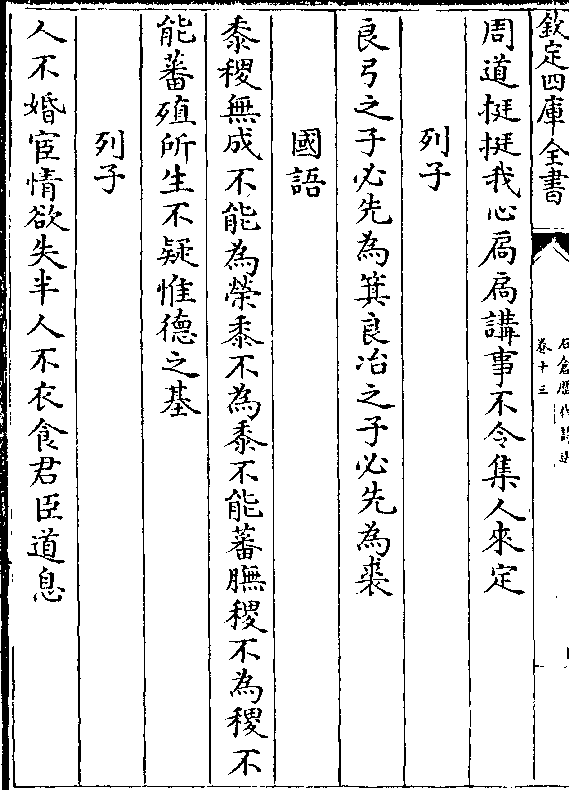 欽定四庫全書
石倉歷代詩選
卷十三
周道挺挺我心扃扃講事不令集人來定
列子
良弓之子必先為箕良冶之子必先為裘
國語
黍稷無成不能為榮黍不為黍不能蕃膴稷不為稷不
能蕃殖所生不疑惟德之基
列子
人不婚宦情欲失半人不衣食君臣道息